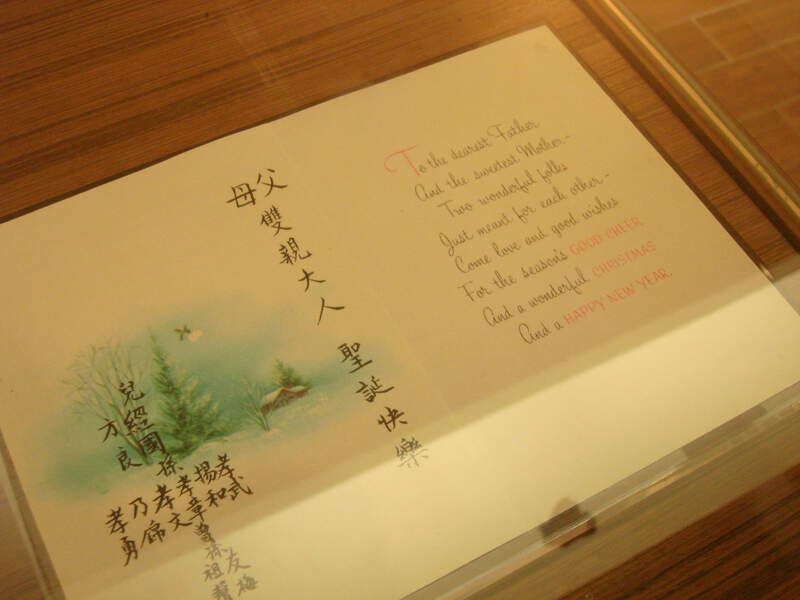 父母雙親大人 聖誕快樂
兒經國
方良
孫
孝文
乃錦
孝章
揚和
孝武
孝勇
曾孫
祖聲
友梅
To the dearest Father
And the sweetest Mother-
Two wonderful folks
Just meant for each other-
Come love and good wishes
For the season's GOOD CHEER
And a wonderful CHRISTMAS
And a HAPPY NEW YEAR.